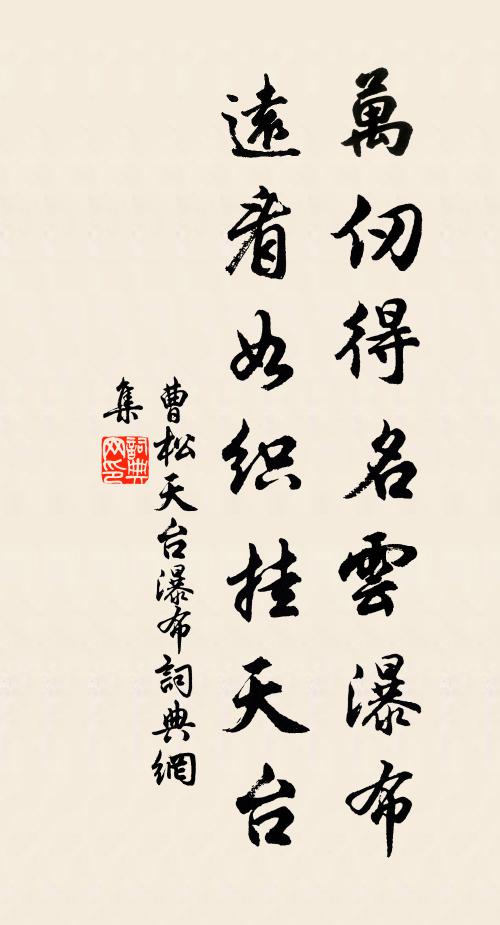 萬仞得名雲瀑布
遠看如织挂天台
曹松天台瀑布詞典網
集
詞典
网印